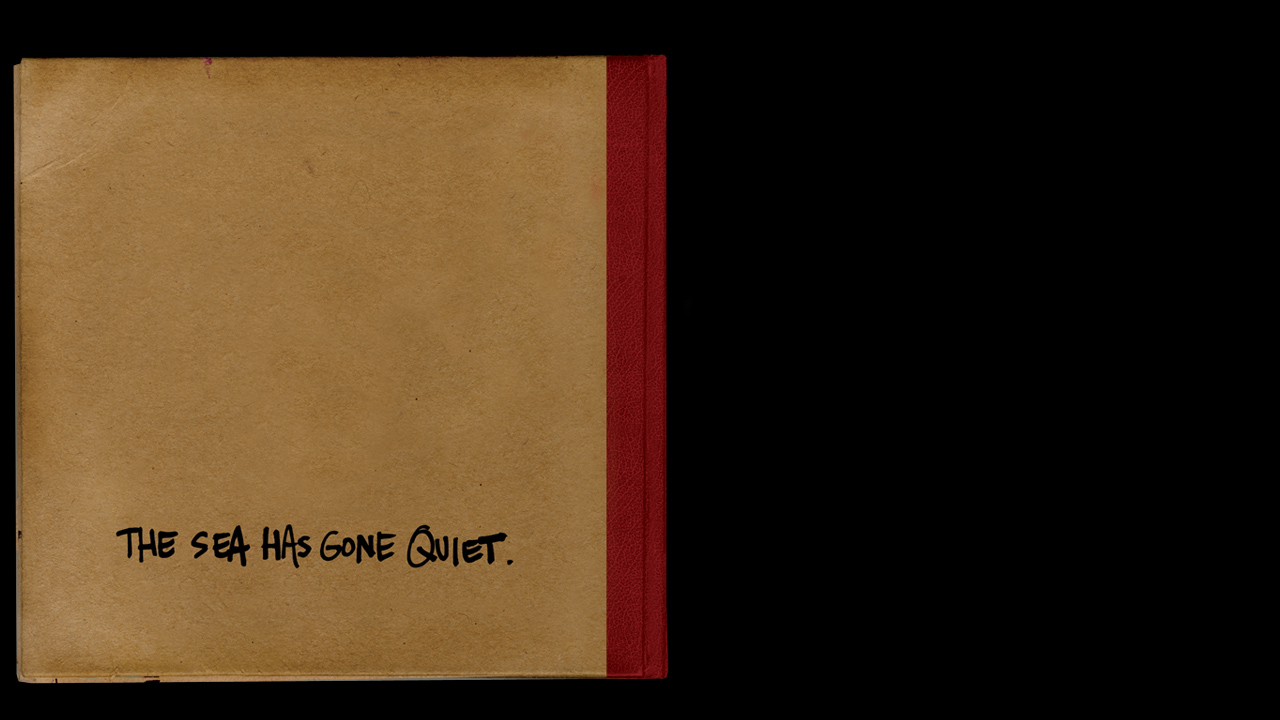 THE SEA HAS GONE QUIET.